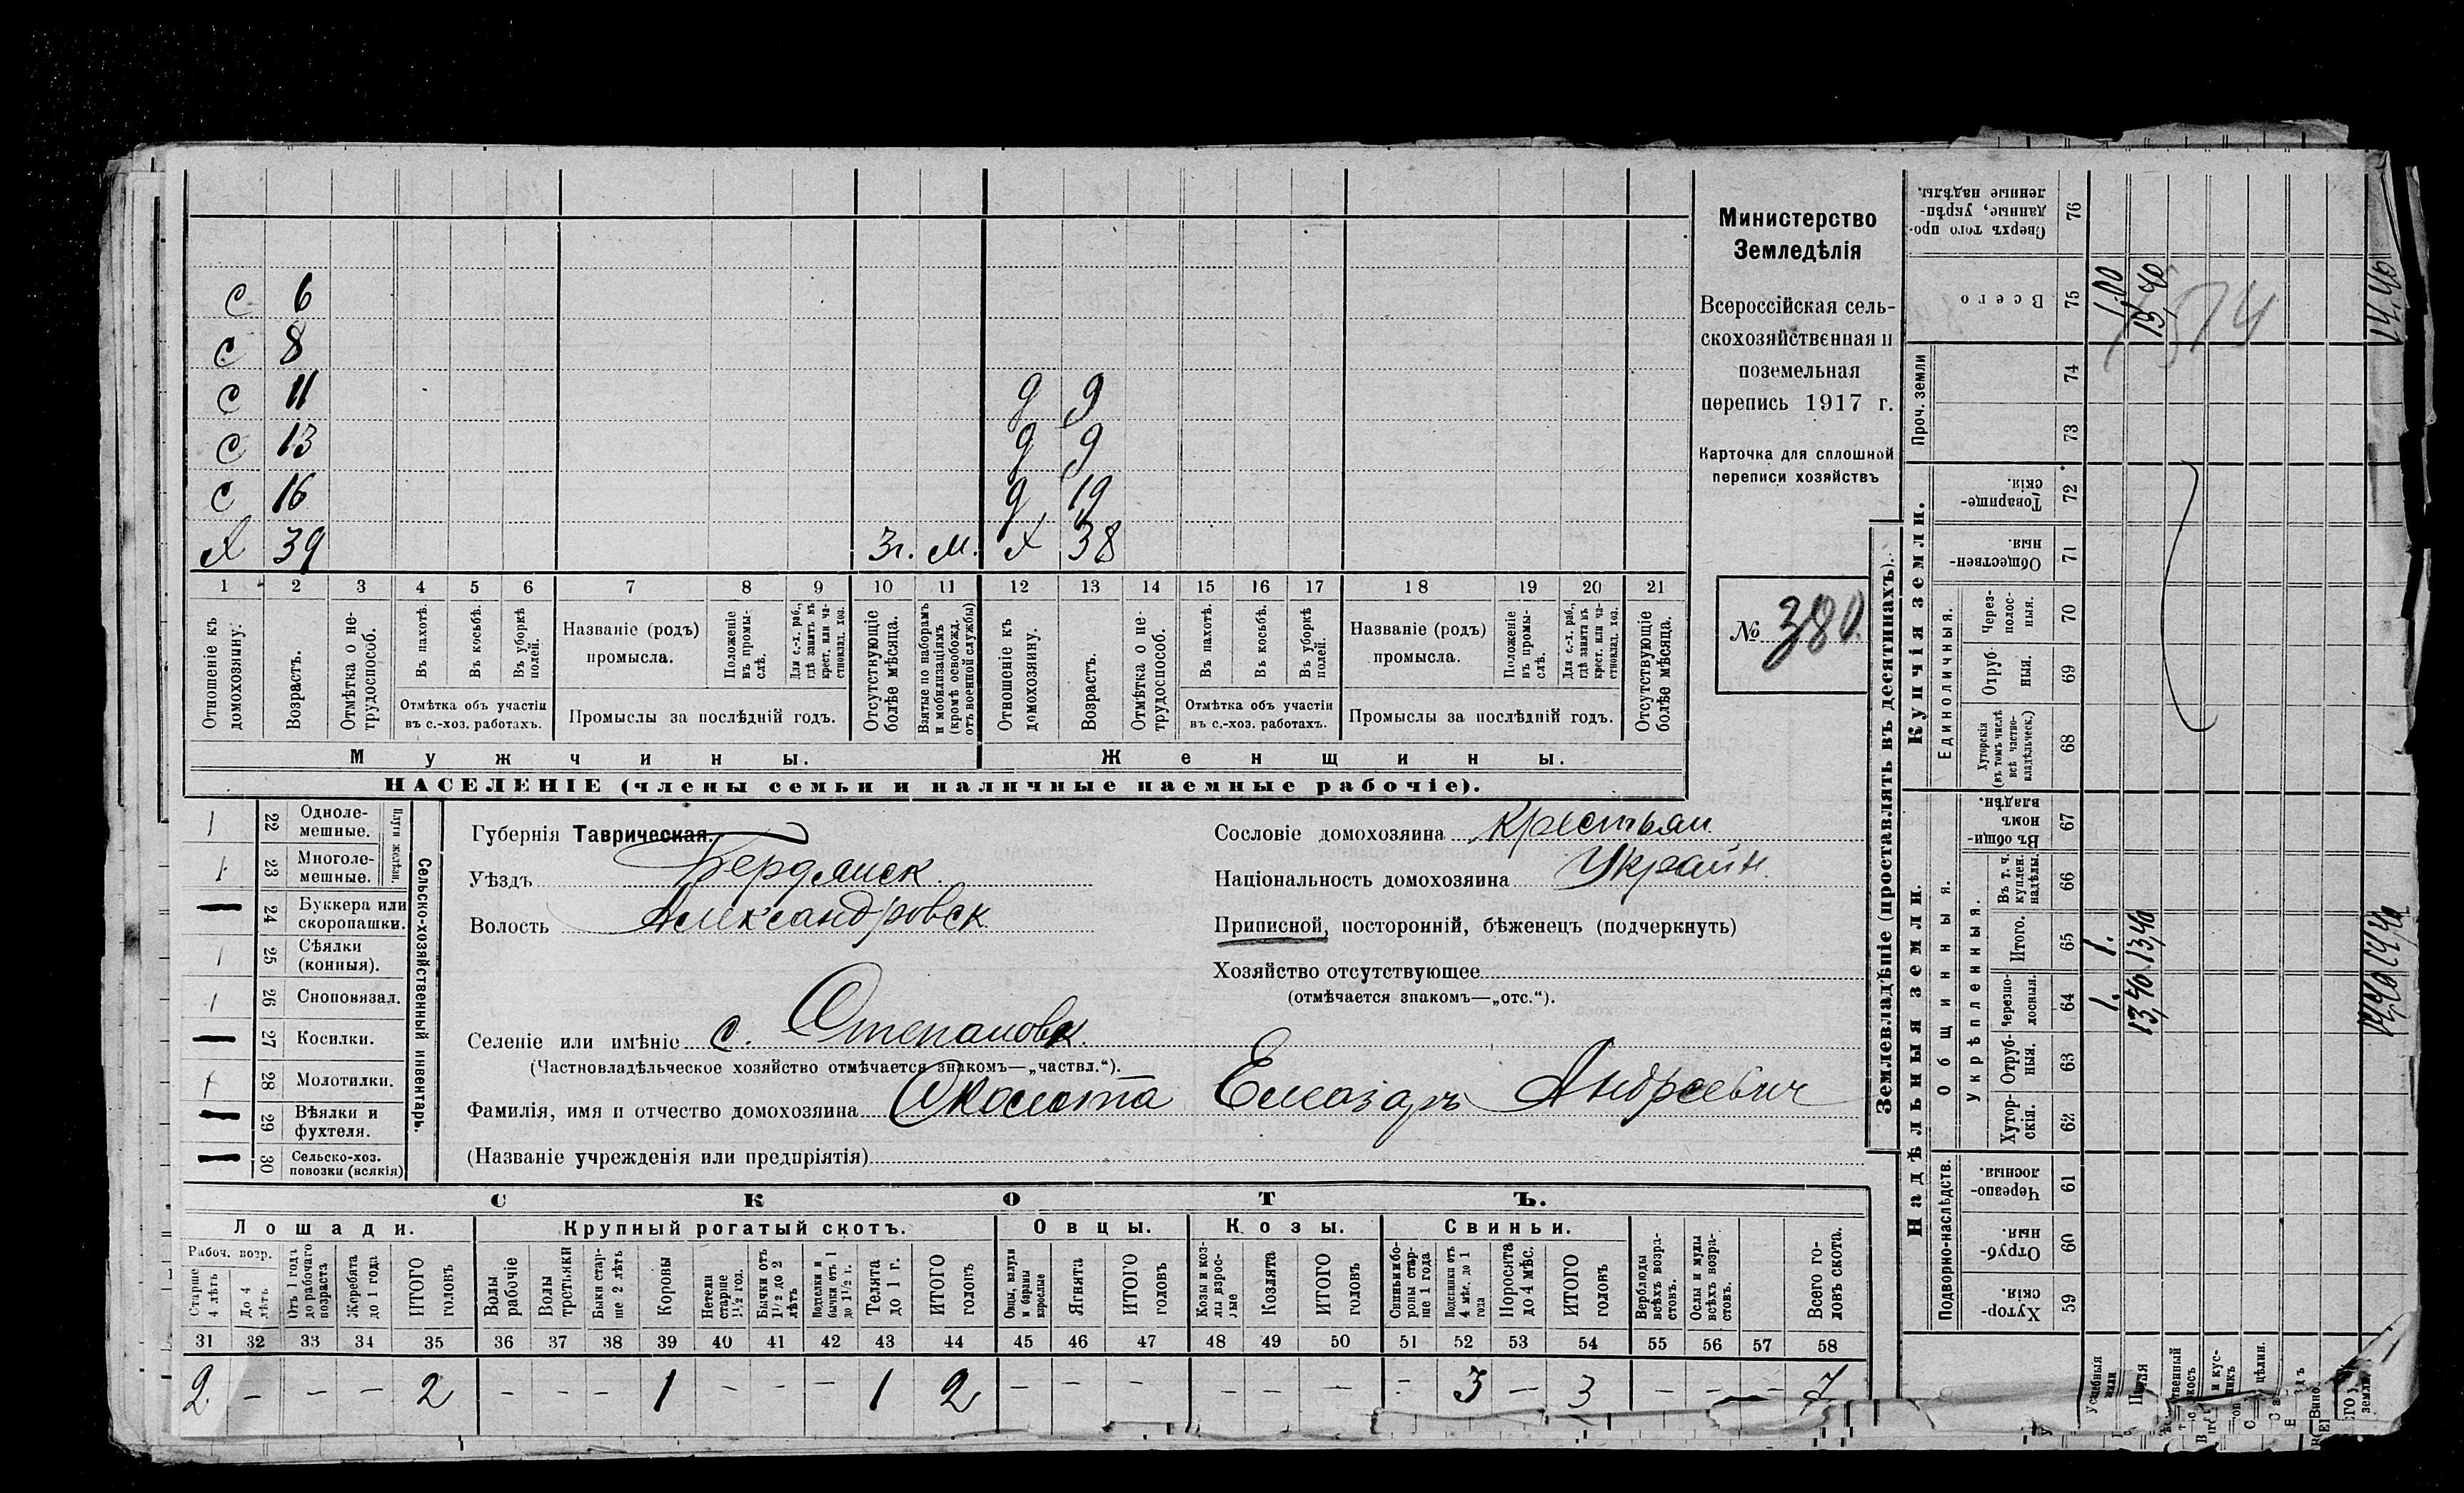 с 6
с 8
с 11 д 9
с 13 д 9
с 16 д 19
х 39 3 г. м. х 38
1 2 3 4 5 6 7 8 9 10 11 12 13 14 15 16 17 18 19 20 21
Отношеніе къ домохозяину.
Возрастъ.
Отмѣтка о нетрудоспособ.
Въ пахотѣ.
Въ косьбѣ.
Въ уборкѣ полей.
Отмѣтка объ участіи
въ с.-хоз. работахъ.
Названіе (родъ)
промысла.
Положеніе въ промыслѣ.
Для с.-х. раб., гдѣ занятъ въ крест. или частновлад. хоз.
Промыслы за послѣдній годъ.
Отсутствующіе болѣе мѣсяца.
Взятые по наборамъ и мобилизаціямъ (кромѣ освобожд. отъ военной службы)
Отношеніе къ домохозяину.
Возрастъ.
Отмѣтка о нетрудоспособ.
Въ пахотѣ.
Въ косьбѣ.
Въ уборкѣ полей.
Отмѣтка объ участіи
въ с.-хоз. работахъ.
Названіе (родъ)
промысла.
Положеніе въ промыслѣ.
Для с.-х. раб., гдѣ занята въ крест. или частновлад. хоз.
Промыслы за послѣдній годъ.
Отсутствующіе болѣе мѣсяца.
Мужчины. Женщины.
НАСЕЛЕНІЕ (члены семьи и наличные наемные рабочіе).
Министерство
Земледѣлія
Всероссійская сель-
скохозяйственная и
поземельная
перепись 1917 г.
Карточка для сплошной
переписи хозяйствъ
№ 380
Сельско-хозяйственный инвентарь.
Плуги желѣзн.
1 22 Одноле-
мешные.
1 23 Многоле-
мешные.
— 24 Буккера или
скоропашки.
1 25 Сѣялки
(конныя).
1 26 Сноповязал.
— 27 Косилки.
28 Молотилки.
— 29 Вѣялки и
фухтеля.
— 30 Сельско-хоз.
повозки (всякія)
Губернія Таврическая.
Уѣздъ Бердянск.
Волость Александровск
Селеніе или имѣніе с. Степановк.
(Частновладѣльческое хозяйство отмѣчается знакомъ—„частвл.“).
Фамилія, имя и отчество домохозяина Сколота Елеазаръ Андреевич
(Названіе учрежденія или предпріятія)
Сословіе домохозяина крестьян.
Національность домохозяина Украин.
Приписной, посторонній, бѣженецъ (подчеркнуть)
Хозяйство отсутствующее
(отмѣчается знакомъ—„отс.“).
СКОТЪ.
Лошади. Крупный рогатый скотъ. Овцы. Козы. Свиньи.
Рабоч. возр.
Старше 4 лѣтъ
До 4 лѣтъ
Отъ 1 года до рабочаго возраста
Жеребята до 1 года
ИТОГО головъ
Волы рабочіе
Волы третьяки
Быки старше 2 лѣтъ
Коровы
Нетели старше 1½ год.
Бычки отъ 1½ до 2 лѣтъ
Подтелки и бычки отъ 1 до 1½ г.
Телята до 1 г.
ИТОГО головъ
Овцы, валухи и бараны взрослые
Ягнята
ИТОГО головъ
Козы и козлы взрослые
Козлята
ИТОГО головъ
Свиньи и боровы старше 1 года
Подсвинки отъ 4 мѣс. до 1 года
Поросята до 4 мѣс.
ИТОГО головъ
Верблюды всѣхъ возрастовъ.
Ослы и мулы всѣхъ возрастовъ.
Всего головъ скота.
31 32 33 34 35 36 37 38 39 40 41 42 43 44 45 46 47 48 49 50 51 52 53 54 55 56 57 58
2 — — — 2 — — — 1 — — — 1 2 — — — — — — — 3 — 3 — — — 7
Землевладѣніе (проставлять въ десятинахъ).
Надѣльныя земли. Купчія земли. Проч. земли
Подворно-наслѣдств.
Общинныя.
Укрѣпленныя.
Единоличныя.
Хуторскія. 59
Отрубныя. 60
Черезполосныя. 61
Хуторскія. 62
Отрубныя. 63
Черезполосныя. 64
Итого. 65
Въ т. ч. куплен. надѣлы. 66
Въ общинномъ владѣн. 67
Хуторскія (въ томъ числѣ всѣ частновладѣльческ.) 68
Отрубныя. 69
Черезполосныя. 70
Общественныя. 71
Товарищескія. 72
73
74
Всего 75
Сверхъ того проданные, укрѣпленные надѣлы. 76
1. 1. 1,00
13,40 13,40 13,40
14,40 14,40 14,40